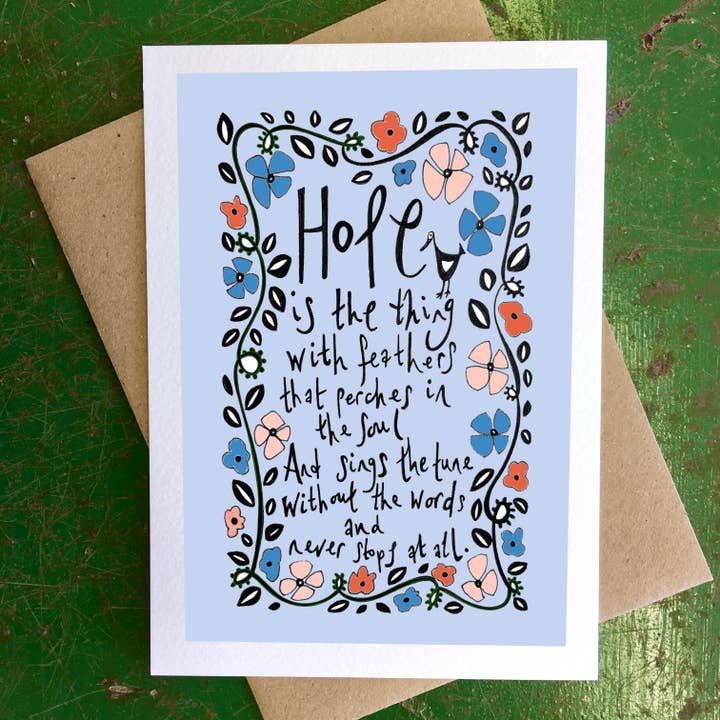 Hope
is the thing
with feathers
that perches in
the soul
And sings the tune
without the words
and
never stops at all.